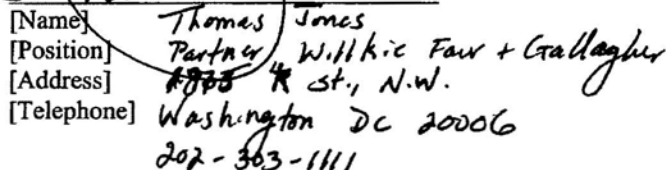 [Name] Thomas Jones
[Position] Partner, Willkie Farr + Gallagher
[Address] 1875 K St., N.W.
[Telephone] Washington DC 20006
202-303-1111